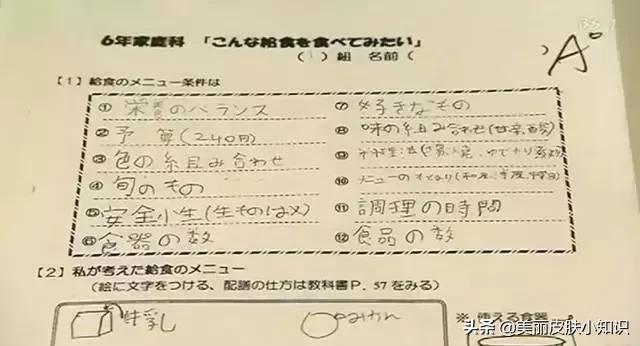 BS
A°
6年家庭科 「こんな給食を食べてみたい」
( 1 ) 組 名前 (
【1】給食のメニュー条件は
① 栄養のバランス
② 予算(240円)
③ 色の組み合わせ
④ 旬のもの
⑤ 安全小生(生ものは×)
⑥ 食器の数
⑦ 好きなもの
⑧ 味の組み合わせ(甘辛酸)
⑨
⑩ メニューの
⑪ 調理の時間
⑫ 食品の数
【2】私が考えた給食のメニュー
(絵に文字をつける、配膳の仕方は教科書P. 57をみる)
牛乳
みかん
※ 使える食器
头条 @美丽皮肤小知识